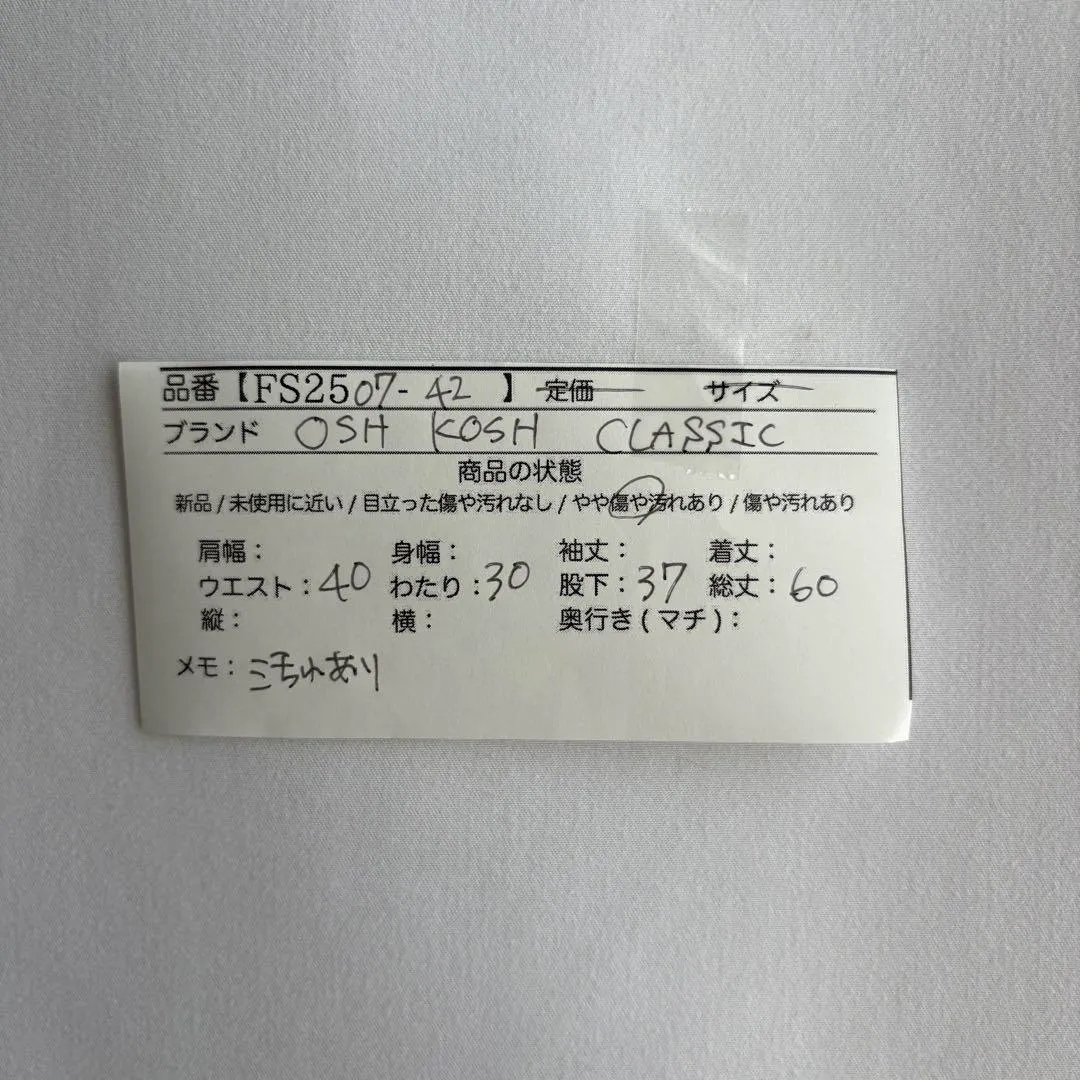 品番【FS2507-42】 定価 サイズ
ブランド OSH KOSH CLASSIC
商品の状態
新品 / 未使用に近い / 目立った傷や汚れなし / やや傷や汚れあり / 傷や汚れあり
肩幅： 身幅： 袖丈： 着丈：
ウエスト：40 わたり：30 股下：37 総丈：60
縦： 横： 奥行き ( マチ )：
メモ： あり